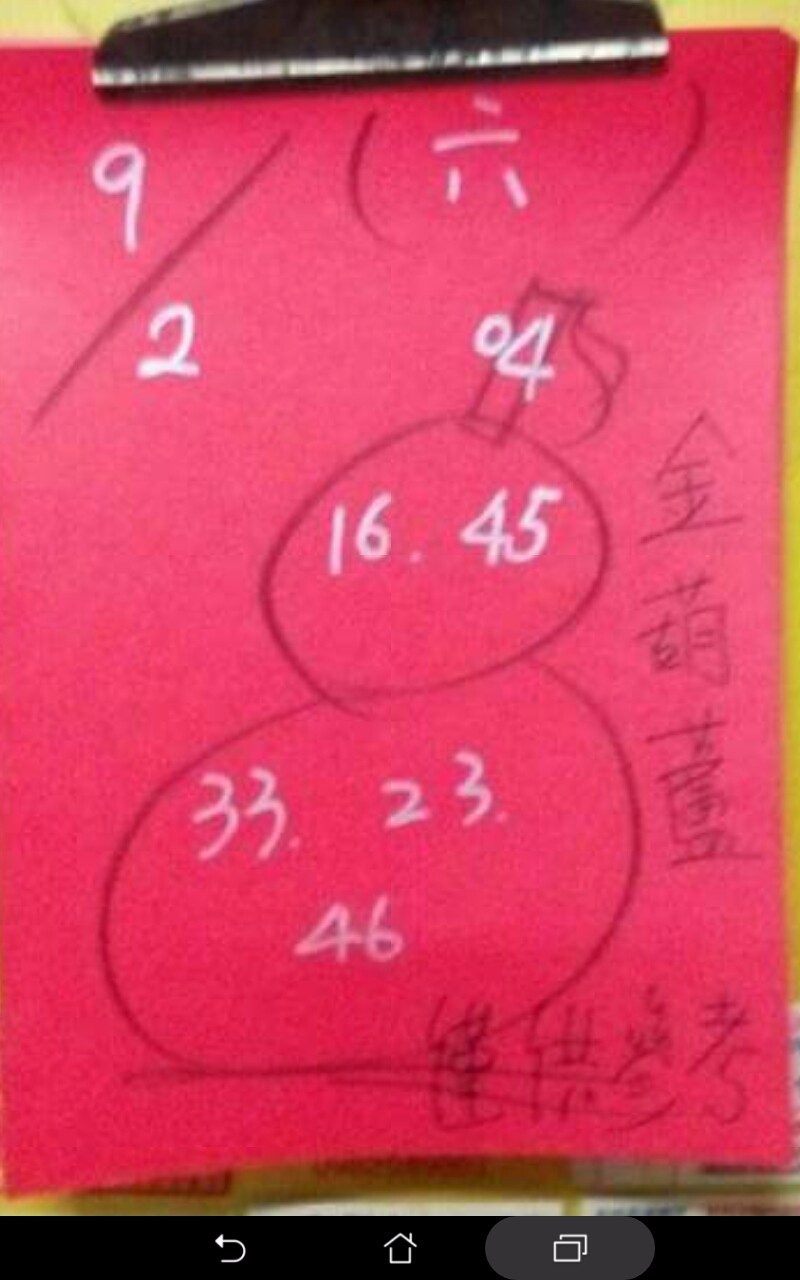 9/2 (六)
04
16. 45
33. 23.
46
金葫蘆
僅供參考